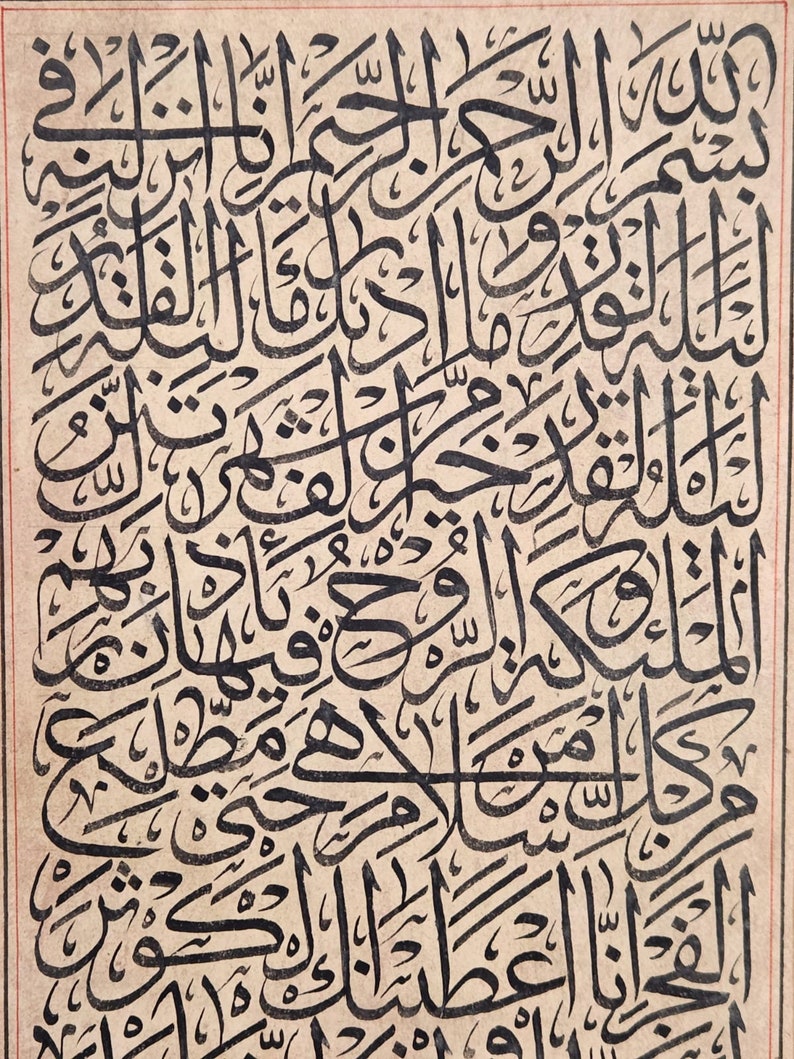 بسم الله الرحمن الرحيم إنا أنزلنه في
ليلة القدر وما أدريك ما ليلة القدر
ليلة القدر خير من ألف شهر تنزل
الملئكة والروح فيها بإذن ربهم
من كل أمر سلام هي حتى مطلع
الفجر إنا أعطينك الكوثر